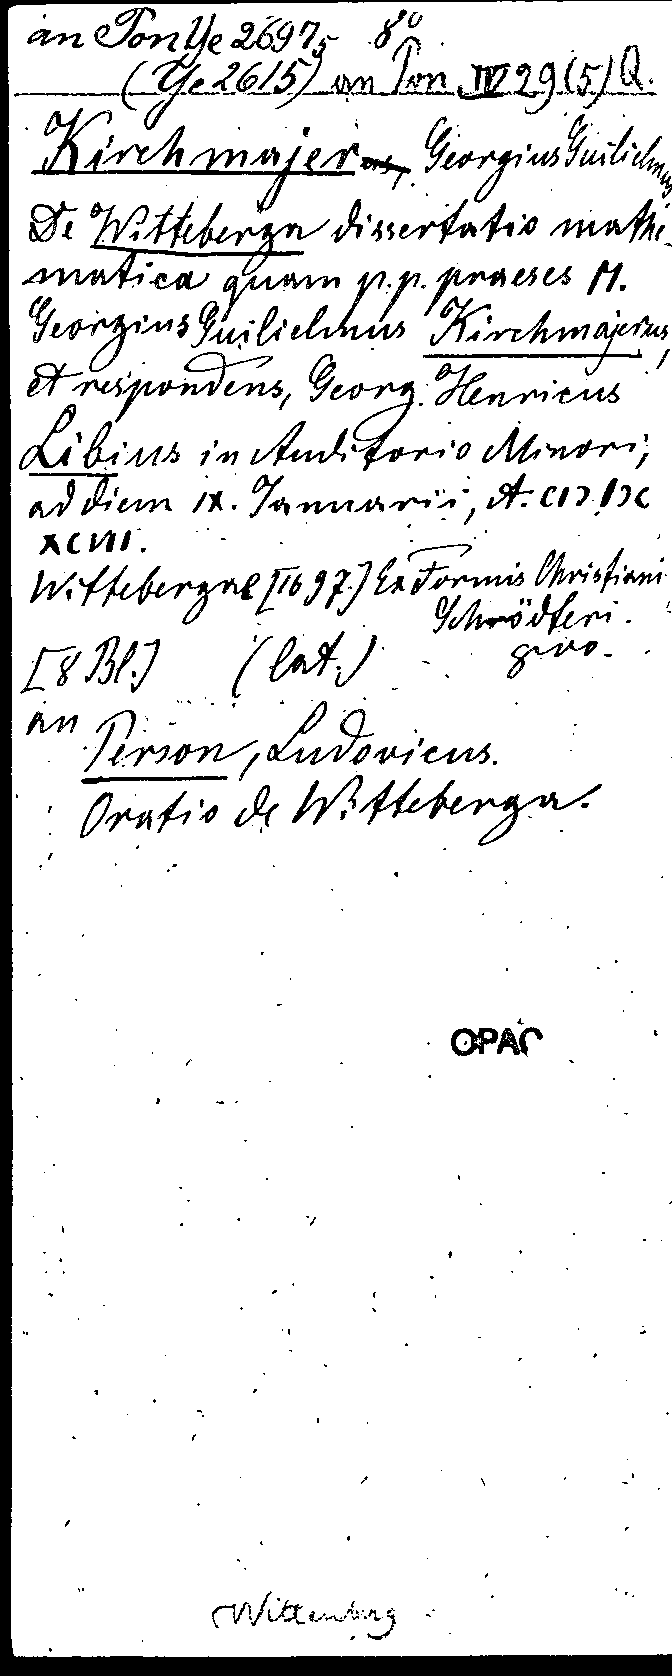 an Pon Ye 2697, 8°
(Ye 2615) an Pon IV 29 (5) Q.
Kirchmajer, Georgius Guilielmus
De Witteberga dissertatio mathe-
matica quam p.p. praeses M.
Georgius Guilielmus Kirchmajerus,
et respondens, Georg. Henricus
Libius in Auditorio Minori,
ad diem IX. Januarii, A. CIƆ IƆC
XCVII.
Wittebergae [1697.] Ex Formis Christiani
Schrödteri.
[8 Bl.] (lat.)
an
Person, Ludovicus.
Oratio de Witteberga.
OPAC
Wittenberg